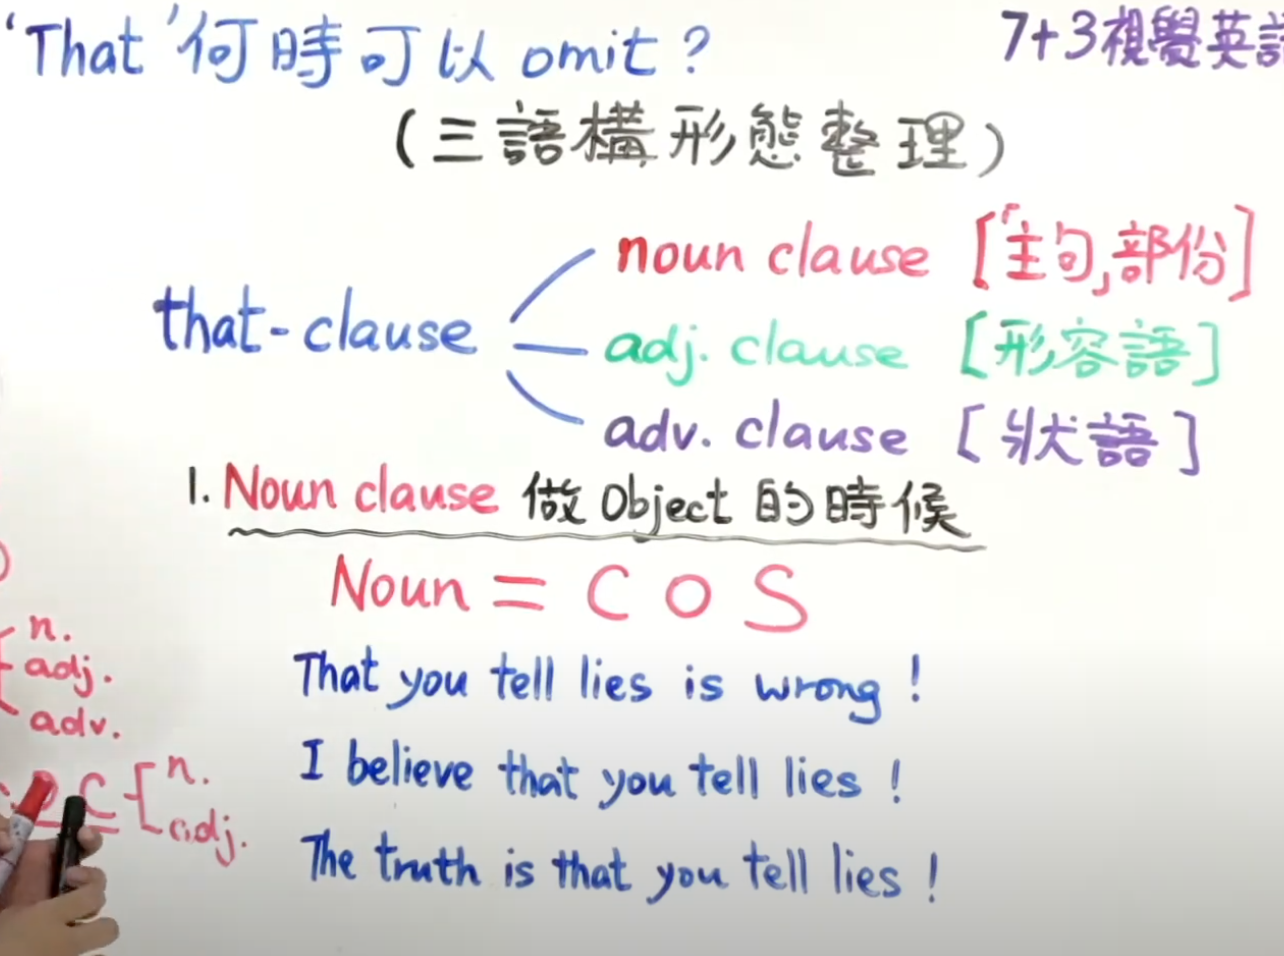 'That'何時可以 omit?
7+3視覺英語
(三語構形態整理)
that-clause
noun clause [「主句」部份]
adj. clause [形容語]
adv. clause [狀語]
1. Noun clause 做 Object 的時候
Noun = C O S
That you tell lies is wrong!
I believe that you tell lies!
The truth is that you tell lies!
n.
adj.
adv.
C
n.
adj.